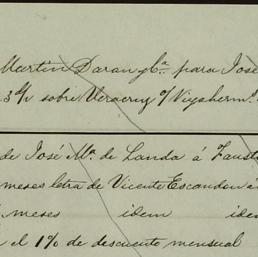 Martin Daran y Cª. para José
3 d/v sobre Veracruz o/ Viya herm.ˢ
de José Mª. de Landa á Faust
meses letra de Vicente Escandon á
meses idem idem
el 1% de descuento mensual